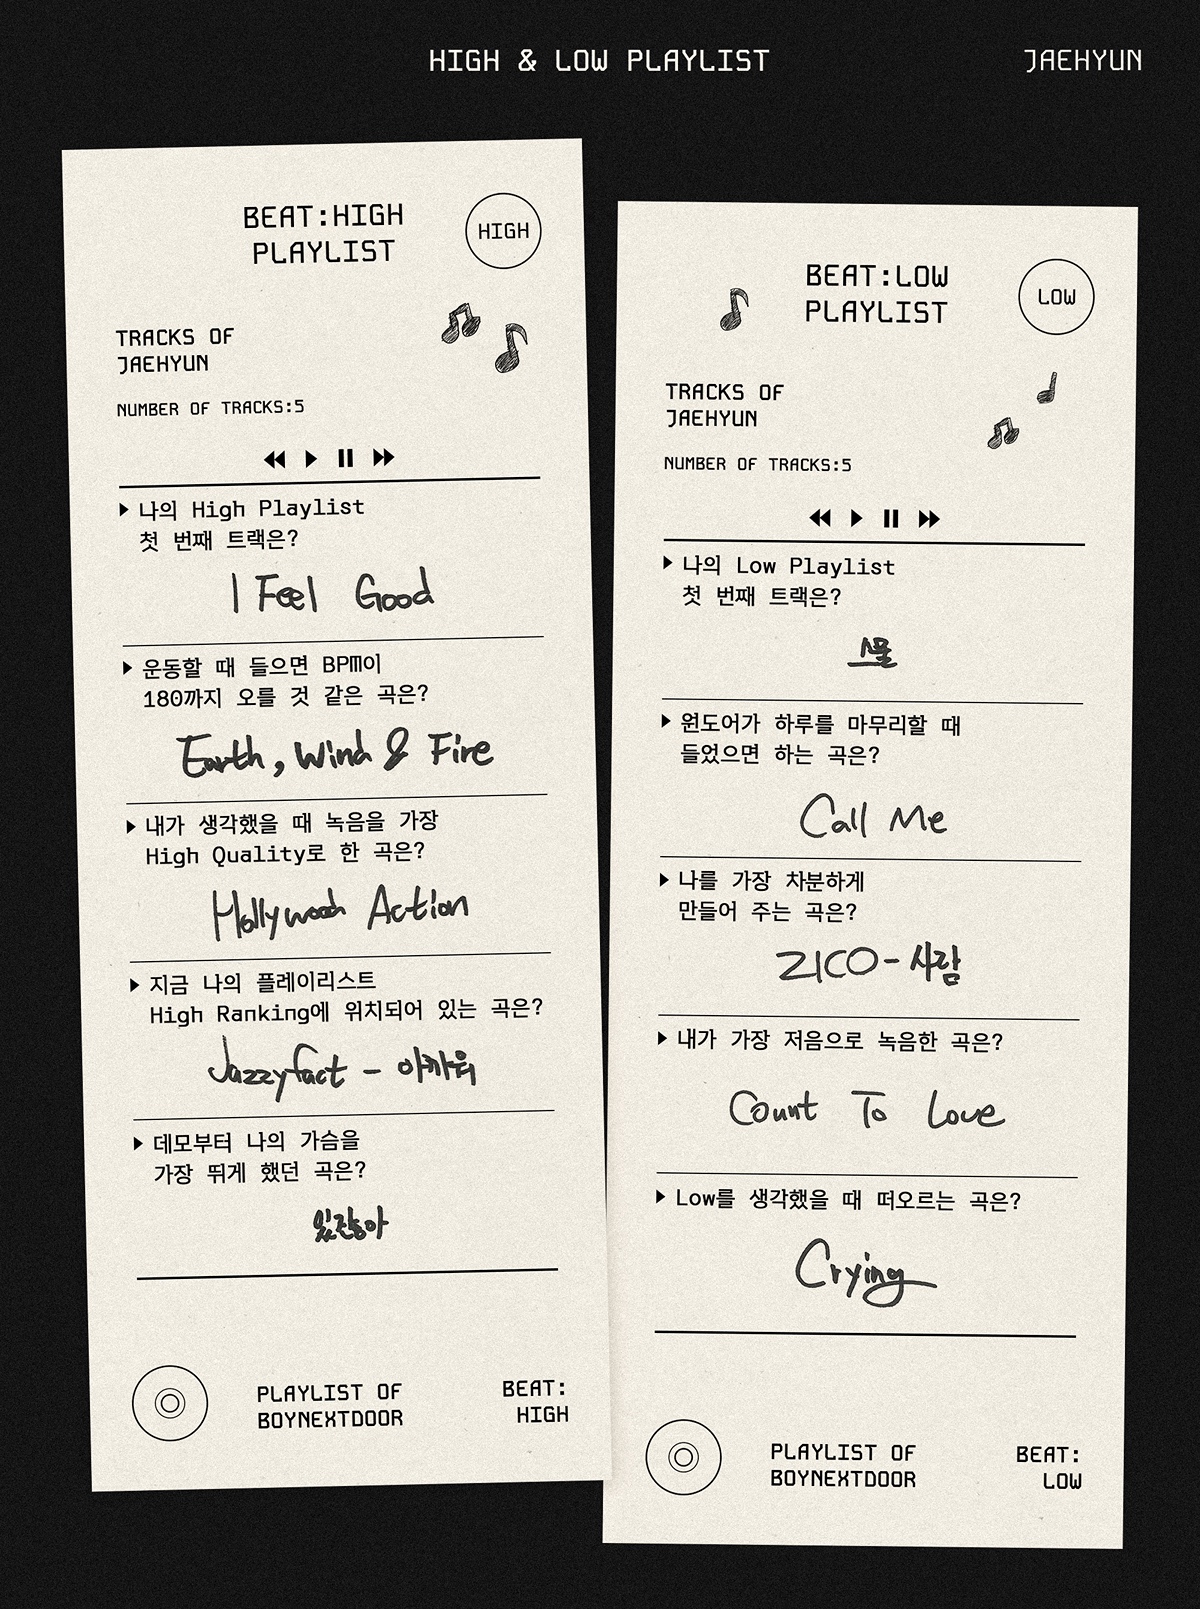 HIGH & LOW PLAYLIST
JAEHYUN
BEAT:HIGH
PLAYLIST
HIGH
TRACKS OF
JAEHYUN
NUMBER OF TRACKS:5
나의 High Playlist
첫 번째 트랙은?
I Feel Good
운동할 때 들으면 BPM이
180까지 오를 것 같은 곡은?
Earth, Wind & Fire
내가 생각했을 때 녹음을 가장
High Quality로 한 곡은?
Hollywood Action
지금 나의 플레이리스트
High Ranking에 위치되어 있는 곡은?
Jazzyfact - 아까워
데모부터 나의 가슴을
가장 뛰게 했던 곡은?
있잖아
PLAYLIST OF
BOYNEXTDOOR
BEAT:
HIGH
BEAT:LOW
PLAYLIST
LOW
TRACKS OF
JAEHYUN
NUMBER OF TRACKS:5
나의 Low Playlist
첫 번째 트랙은?
스물
원도어가 하루를 마무리할 때
들었으면 하는 곡은?
Call Me
나를 가장 차분하게
만들어 주는 곡은?
ZICO - 사람
내가 가장 저음으로 녹음한 곡은?
Count To Love
Low를 생각했을 때 떠오르는 곡은?
Crying
PLAYLIST OF
BOYNEXTDOOR
BEAT:
LOW